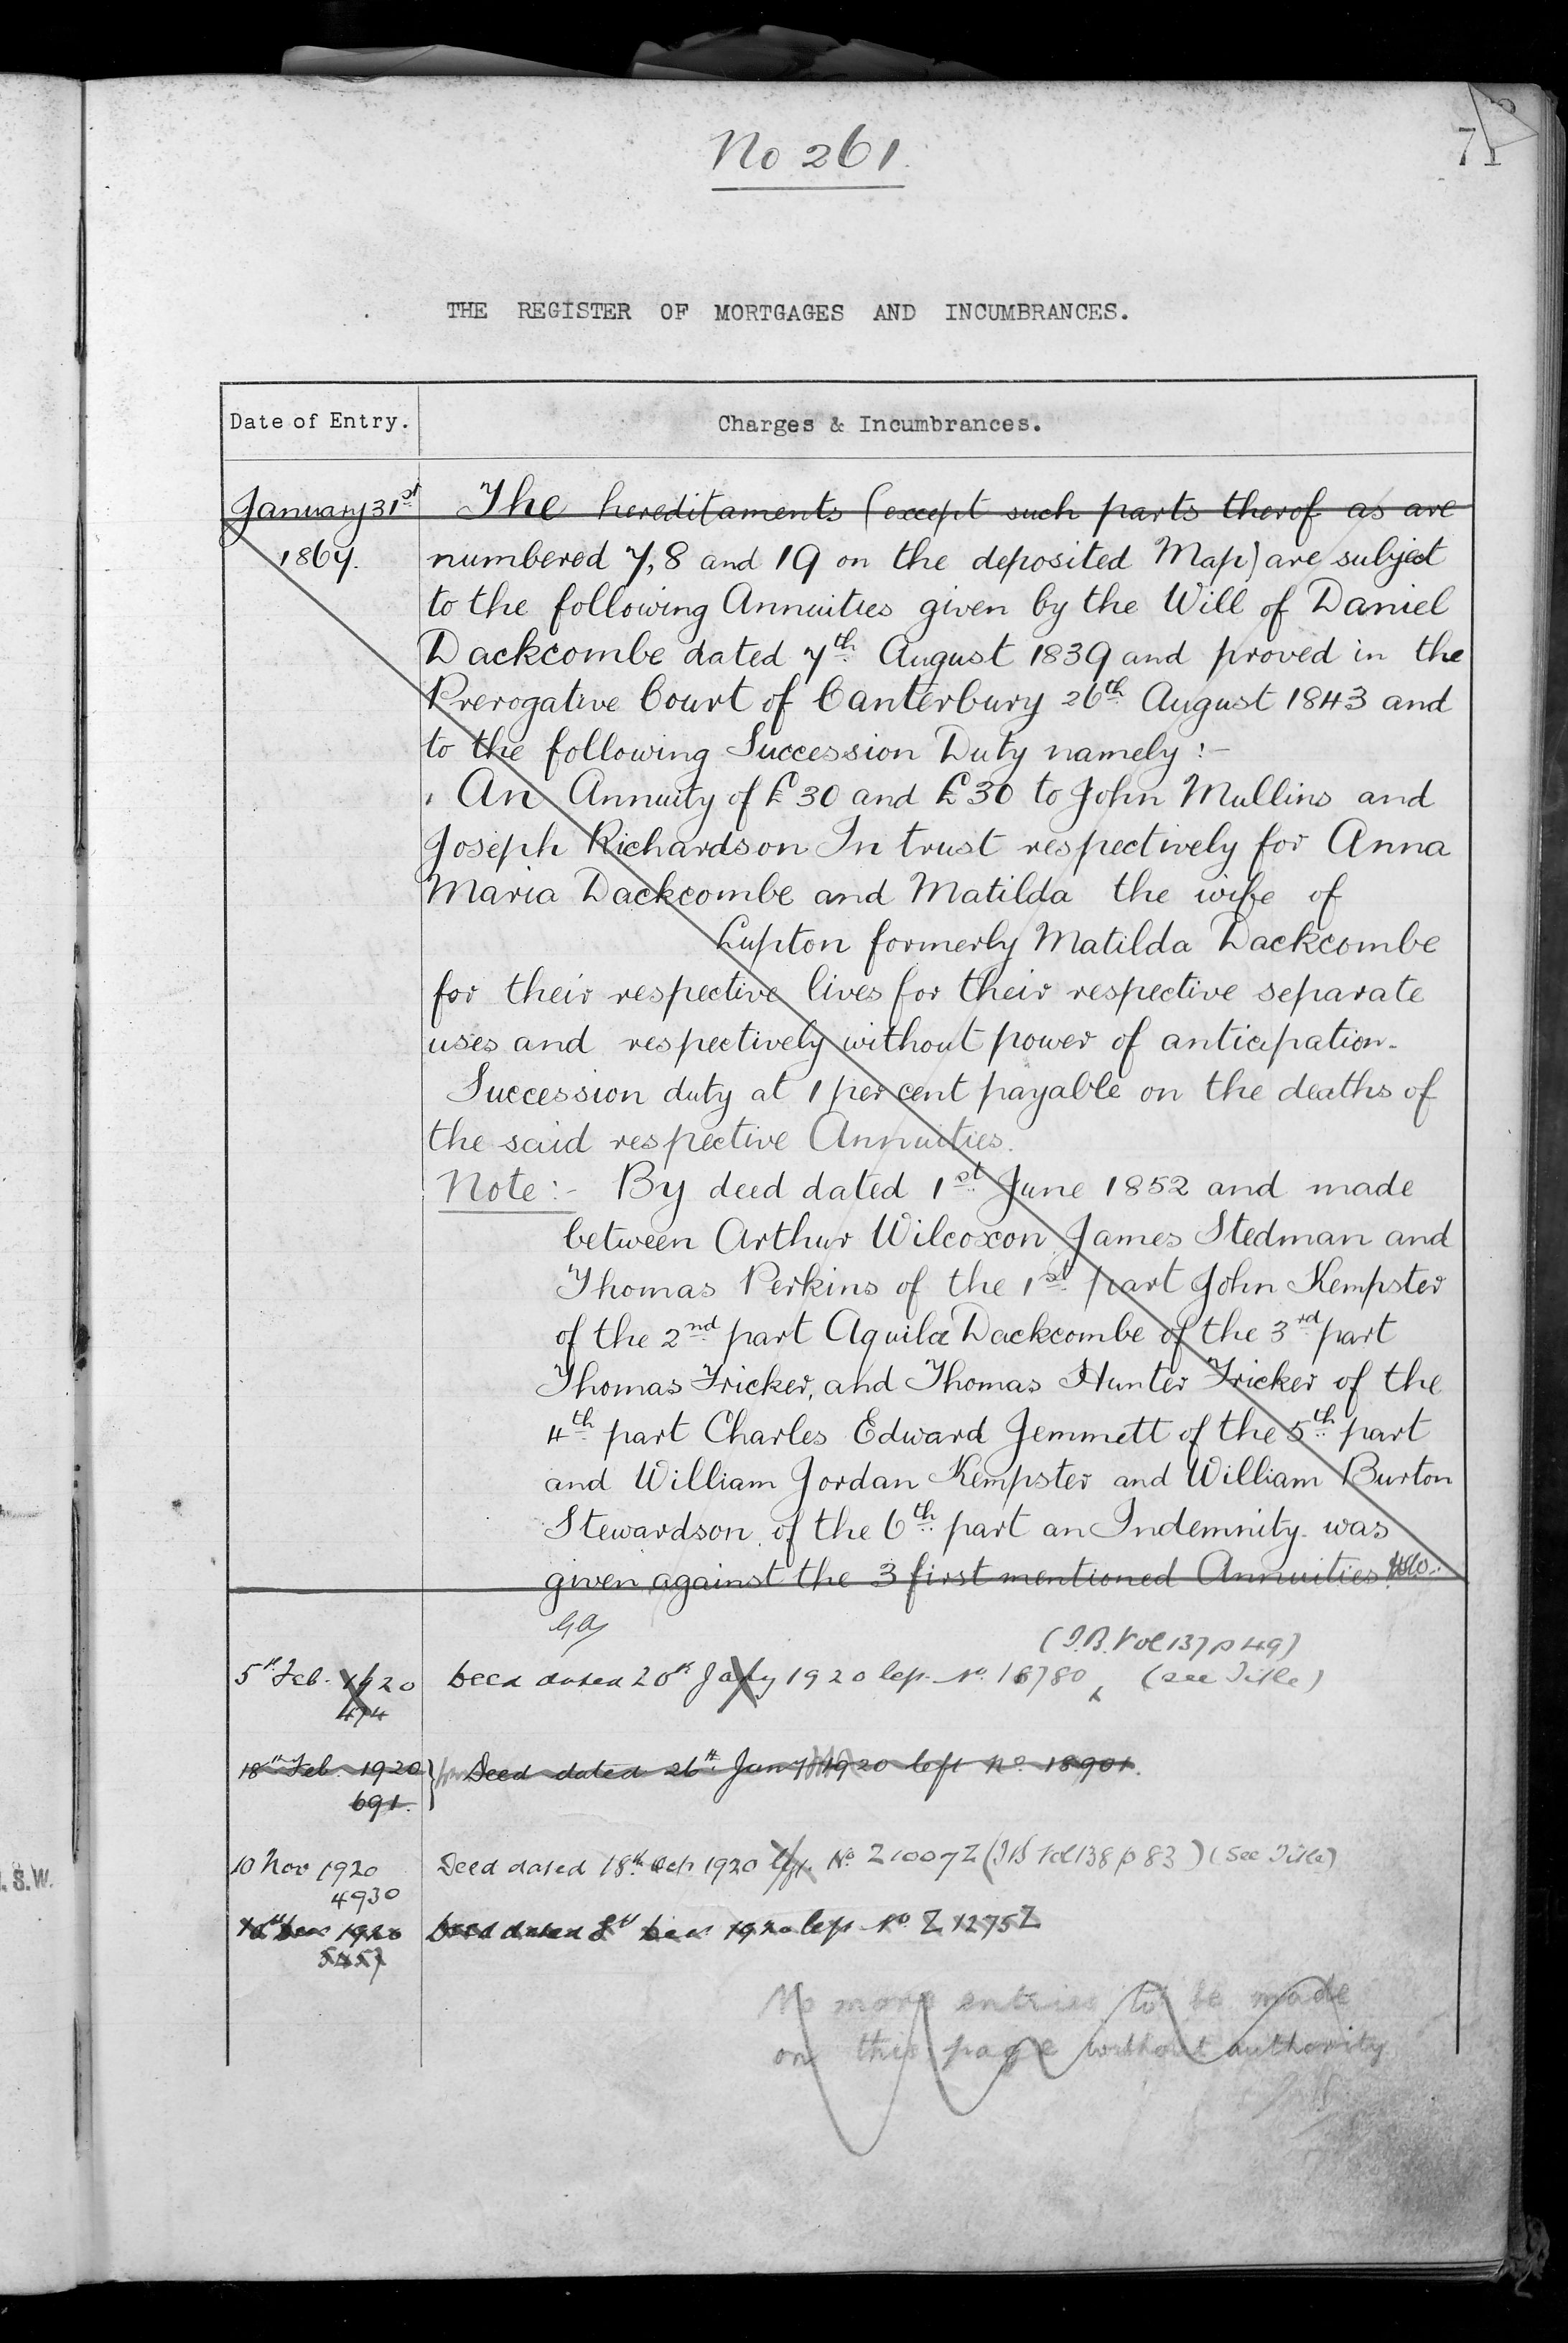 No 261.
71
THE REGISTER OF MORTGAGES AND INCUMBRANCES.
Date of Entry. Charges & Incumbrances.
January 31st The hereditaments (except such parts therof as are
1867. numbered 7, 8 and 19 on the deposited Map) are subject
to the following Annuities given by the Will of Daniel
Dackcombe dated 7th August 1839 and proved in the
Prerogative Court of Canterbury 26th August 1843 and
to the following Succession Duty namely :-
An Annuity of £30 and £30 to John Mullins and
Joseph Richardson In trust respectively for Anna
Maria Dackcombe and Matilda the wife of
Lupton formerly Matilda Dackcombe
for their respective lives for their respective separate
uses and respectively without power of anticipation.
Succession duty at 1 per cent payable on the deaths of
the said respective Annuities.
Note :- By deed dated 1st June 1852 and made
between Arthur Wilcoxon James Stedman and
Thomas Perkins of the 1st part John Kempster
of the 2nd part Aquila Dackcombe of the 3rd part
Thomas Fricker, and Thomas Hunter Fricker of the
4th part Charles Edward Jemmett of the 5th part
and William Jordan Kempster and William Burton
Stewardson of the 6th part an Indemnity was
given against the 3 first mentioned Annuities
(I.B. Vol 137 p 49)
5th Feb. 1920 Deed dated 20th Jany 1920 left No. 18780 (see Title)
474
18th Feb. 1920 Deed dated 26th Jany 1920 left No. 18901.
691.
10 Nov 1920 Deed dated 18th Oct 1920 left No Z1007Z (IB Vol 138 p 83) (See Title)
4930
Dec 1920 Deed dated 8th Dec 1920 left No Z1275Z
No more entries to be made
on this page without authority
.S.W.